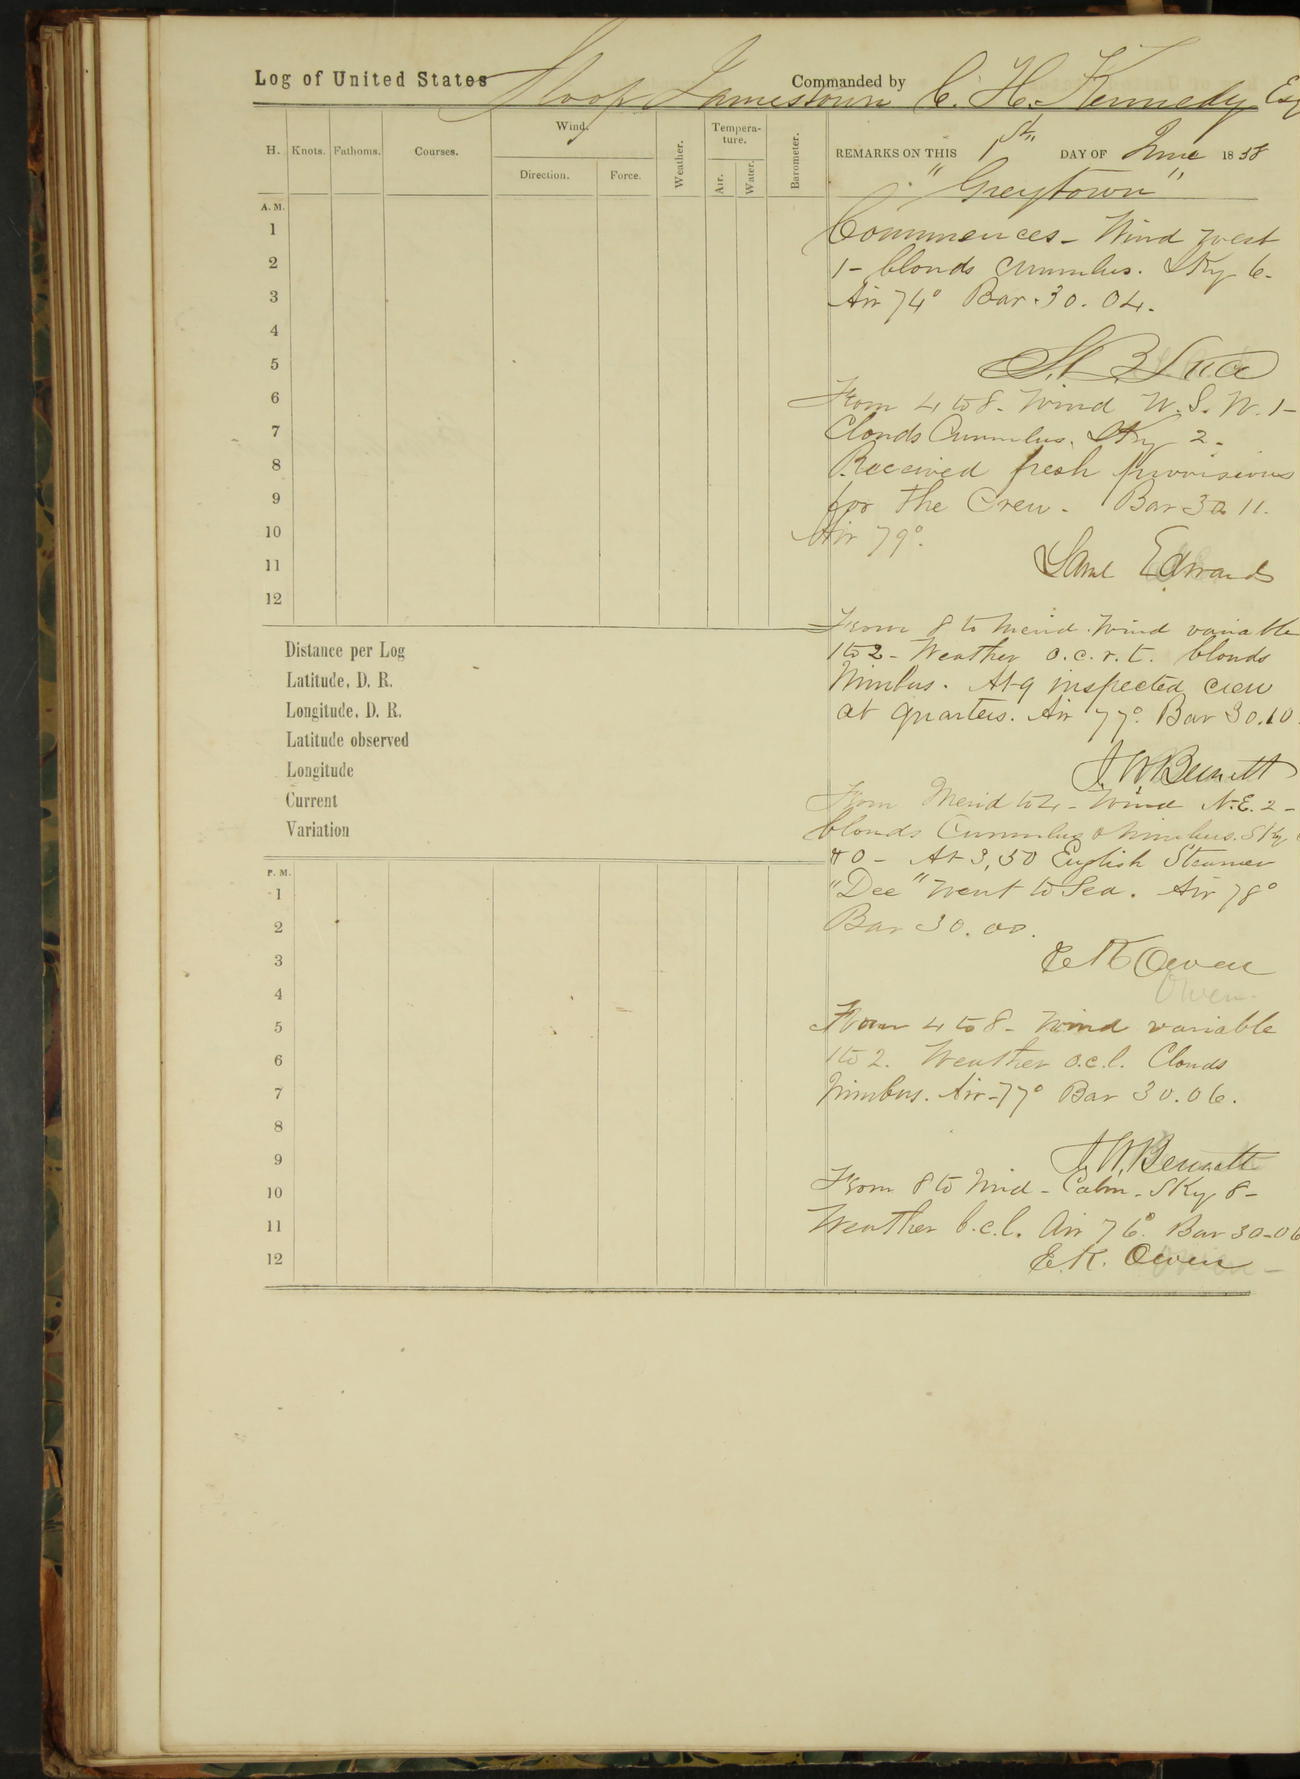 Log of United States Sloop Jamestown Commanded by C. H. Kennedy Esq
H. Knots. Fathoms. Courses. Wind. Direction. Force. Weather. Tempera-ture. Air. Water. Barometer. REMARKS ON THIS 1st DAY OF June 1858
"Greytown"
A. M.
1 Commences - Wind West
2 1 - Clouds cumulus. Sky 6.
3 Air 74° Bar. 30.04.
4
5 S. B. Luce
6 From 4 to 8. Wind W.S.W. 1 -
7 Clouds Cumulus. Sky 2.
8 Received fresh Provisions
9 for the Crew. Bar 30.11.
10 Air 79°.
11 Saml Edwards
12
From 8 to Merid. Wind variable
Distance per Log 1 to 2 - Weather o.c.r.t. Clouds
Latitude, D. R. Nimbus. At 9 inspected crew
Longitude, D. R. at quarters. Air 77°. Bar 30.10.
Latitude observed
Longitude J. W. Bennett
Current From Merid to 4 - Wind N.E. 2 -
Variation Clouds Cumulus & Nimbus. Sky
P. M. & 0 - At 3,50 English Steamer
1 "Dee" went to Sea. Air 78°
2 Bar 30.00.
3 E K Owen
4 Owen
5 From 4 to 8 - Wind variable
6 1 to 2. Weather o.c.l. Clouds
7 Nimbus. Air - 77° Bar 30.06.
8
9 J. W. Bennett
10 From 8 to Mid - Calm. Sky 8 -
11 Weather b.c.l. Air 76° Bar 30-06
12 E. K. Owen